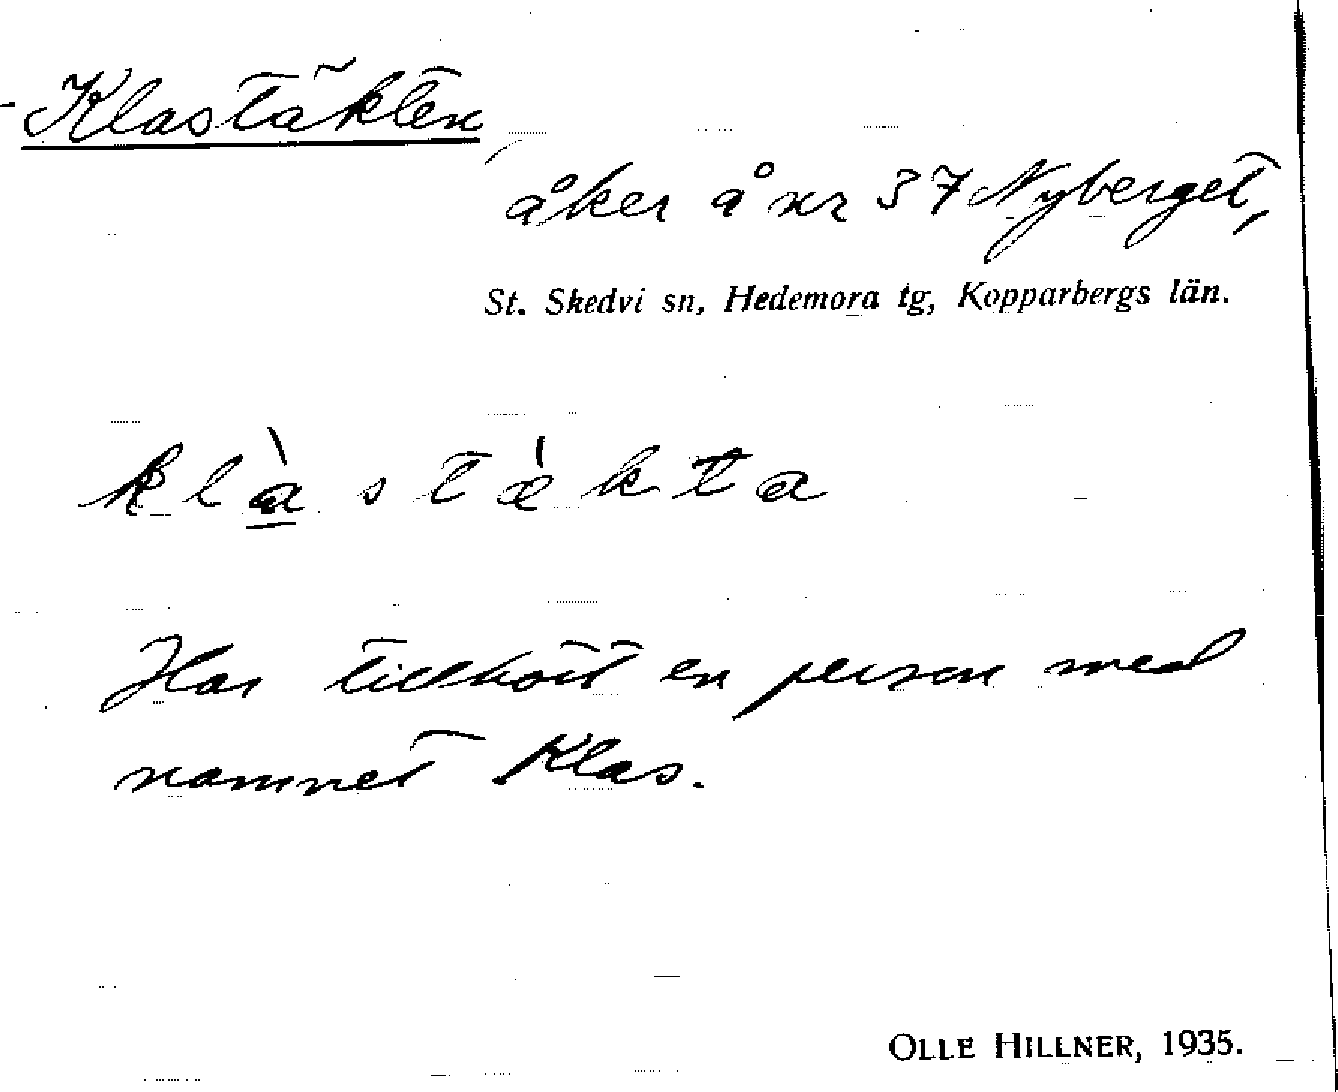 Klastäkten
åker å nr 37 Nyberget,
St. Skedvi sn, Hedemora tg, Kopparbergs län.
klàstæ̀kta
Har tillhört en person med
namnet Klas.
OLLE HILLNER, 1935.